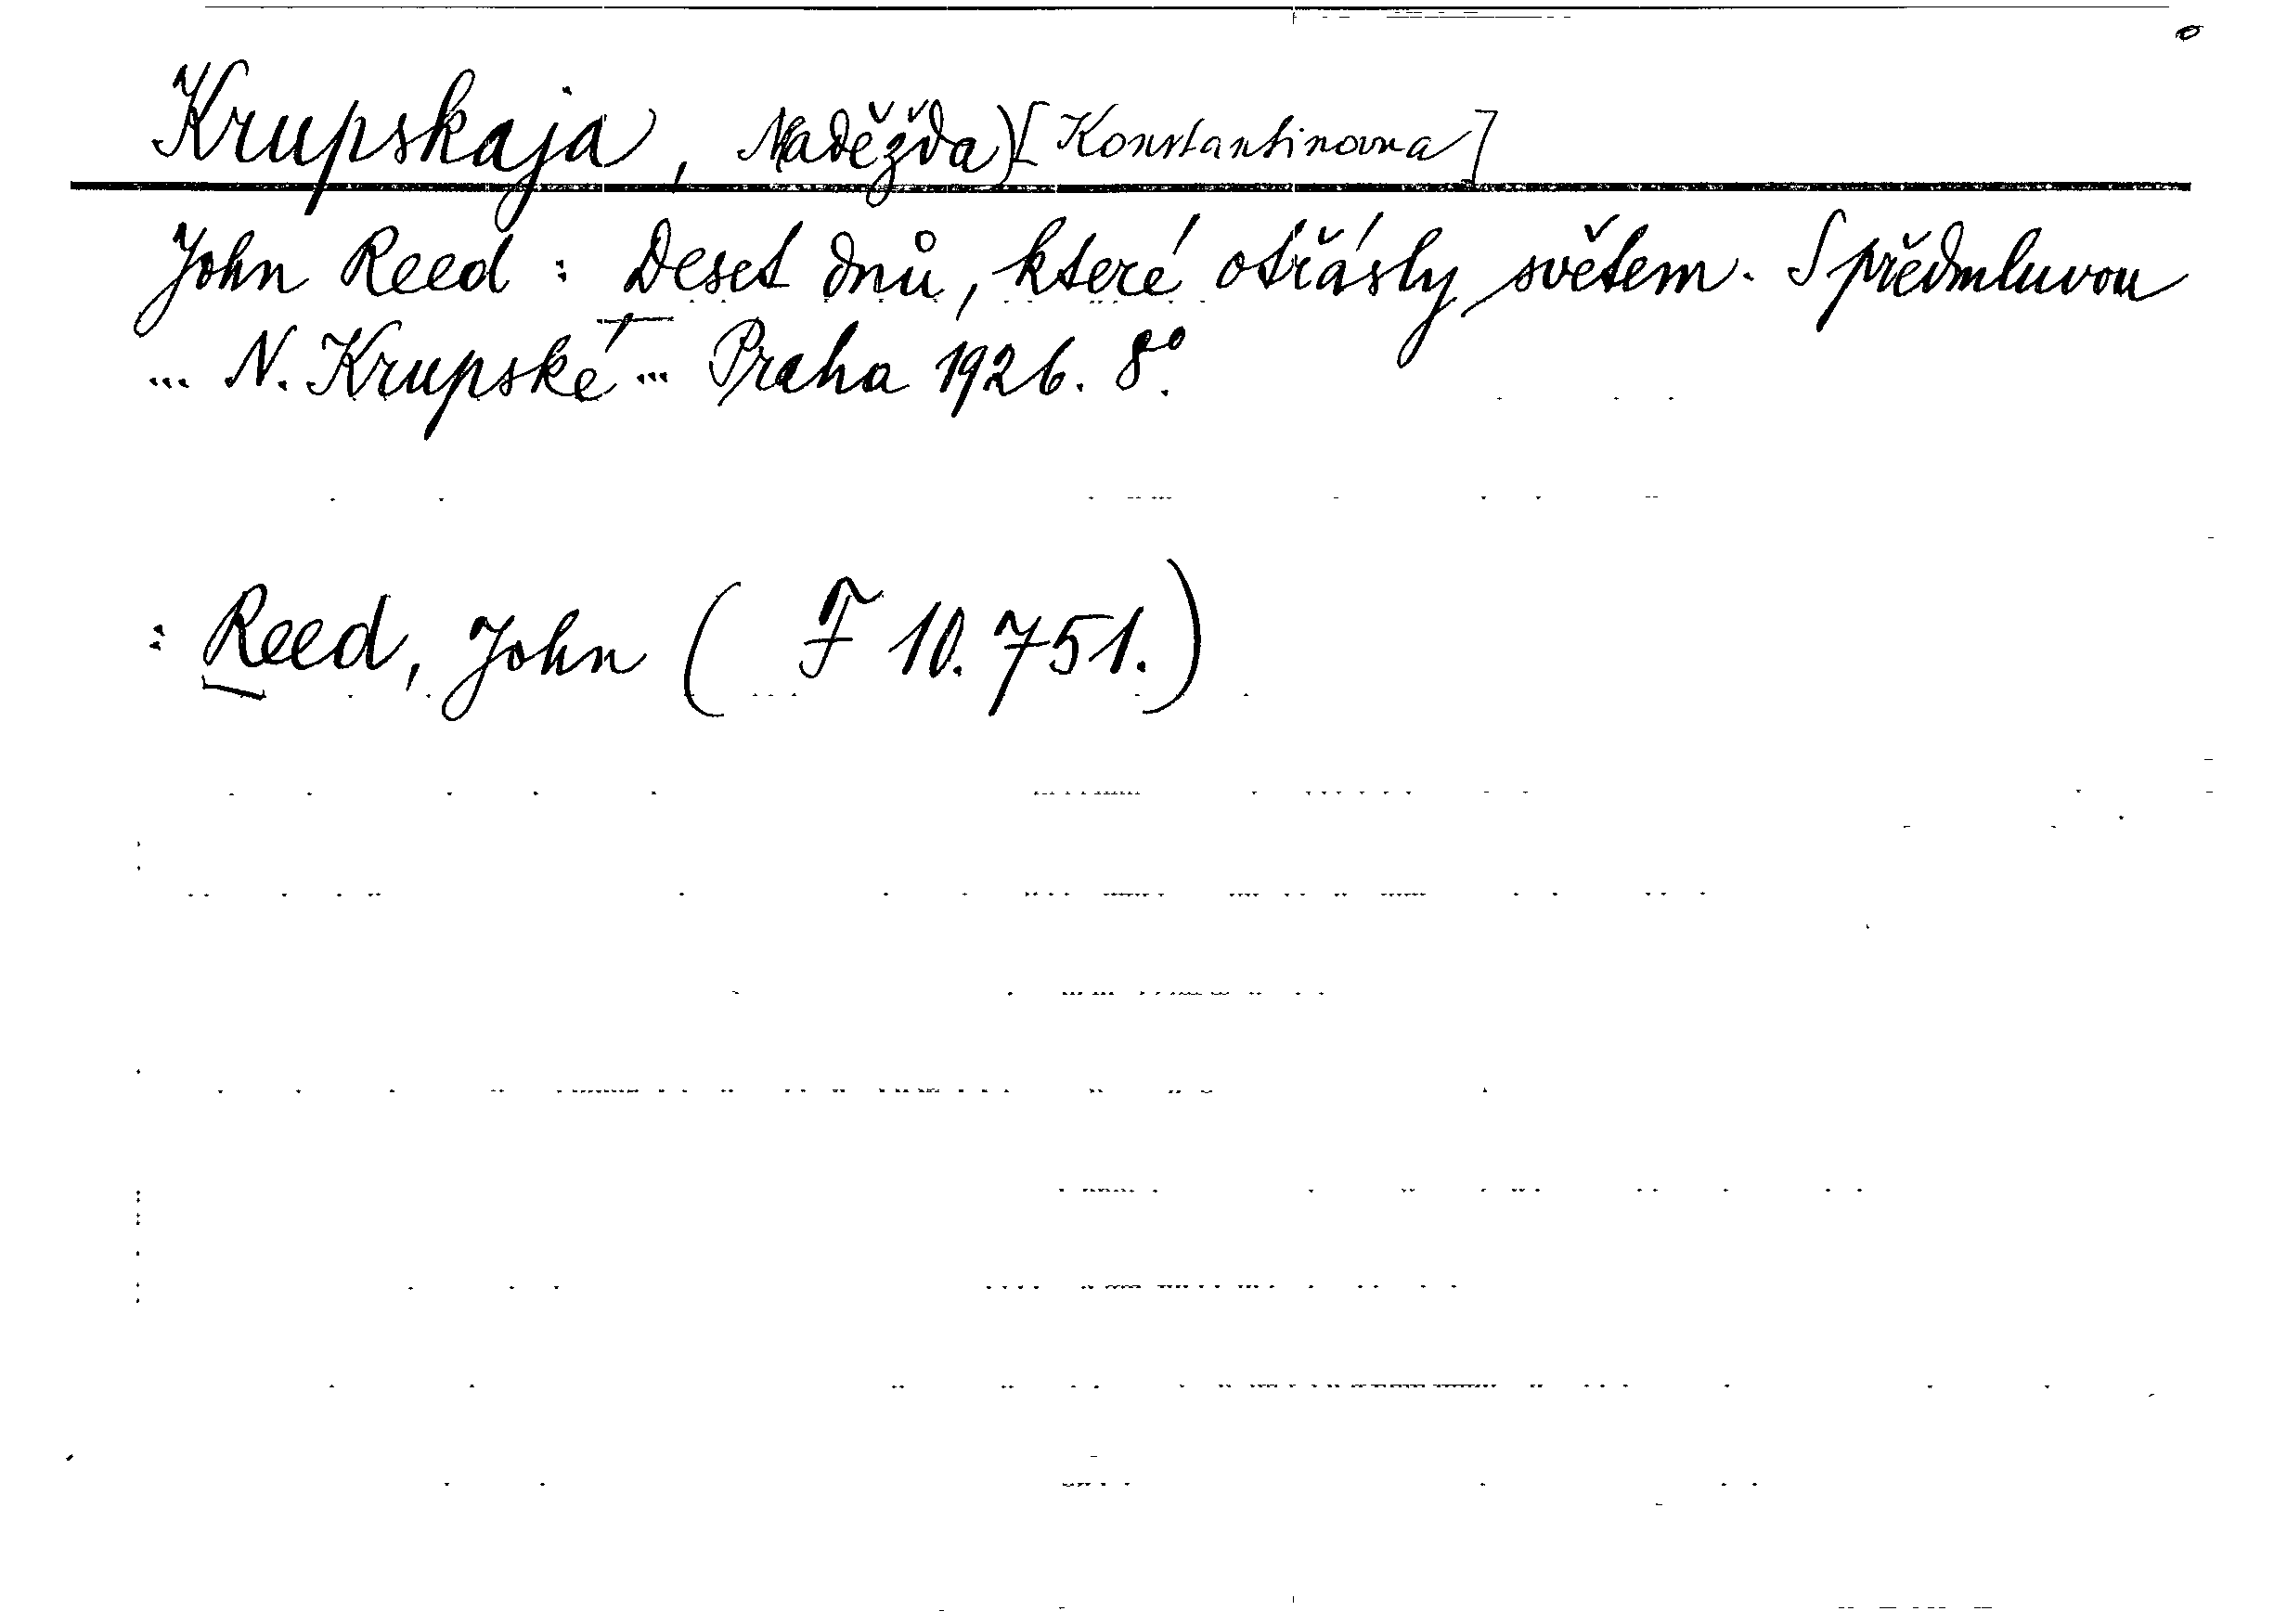 Krupskaja, Naděžda) [Konstantinovna]
John Reed : Deset dnů, které otřásly světem. S předmluvou
... N. Krupské ... Praha 1926. 8°.
: Reed, John ( F 10.751.)